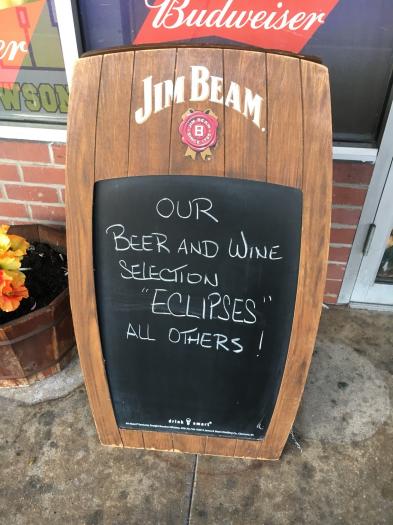 Budweiser
er
WSON
JIM BEAM
B
OUR
BEER AND WINE
SELECTION
"ECLIPSES"
ALL OTHERS !
drink smart